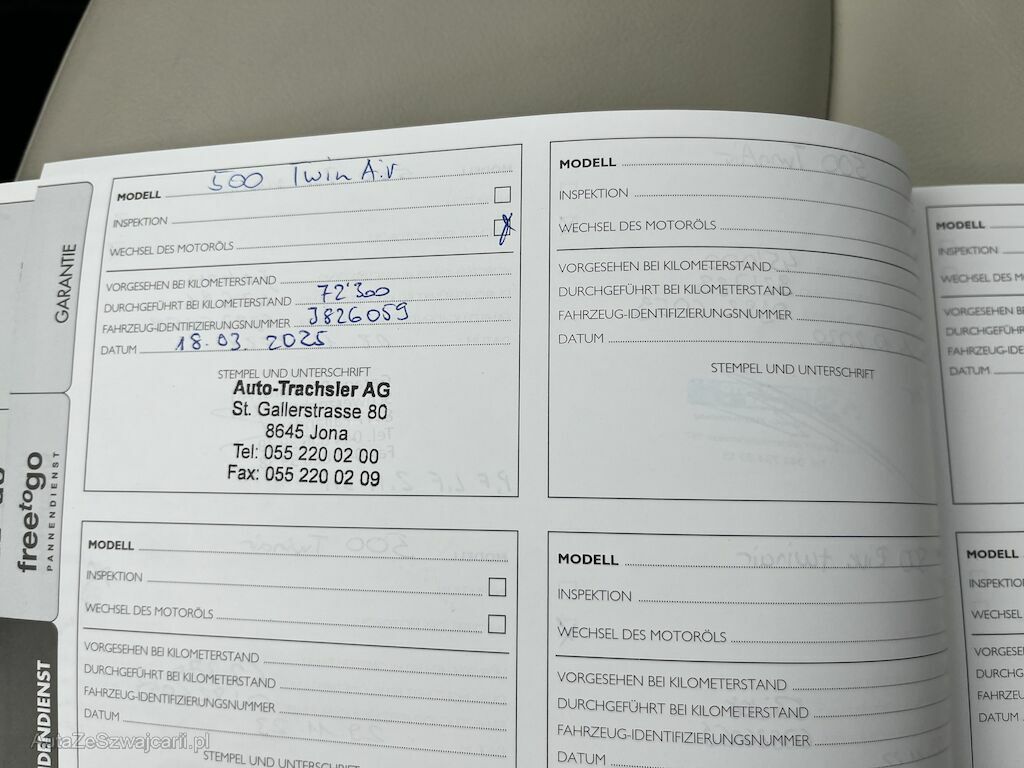 MODELL 500 TwinAir
INSPEKTION
WECHSEL DES MOTORÖLS
VORGESEHEN BEI KILOMETERSTAND
DURCHGEFÜHRT BEI KILOMETERSTAND 72'300
FAHRZEUG-IDENTIFIZIERUNGSNUMMER J826059
DATUM 18.03.2025
STEMPEL UND UNTERSCHRIFT
Auto-Trachsler AG
St. Gallerstrasse 80
8645 Jona
Tel: 055 220 02 00
Fax: 055 220 02 09
MODELL
INSPEKTION
WECHSEL DES MOTORÖLS
VORGESEHEN BEI KILOMETERSTAND
DURCHGEFÜHRT BEI KILOMETERSTAND
FAHRZEUG-IDENTIFIZIERUNGSNUMMER
DATUM
STEMPEL UND UNTERSCHRIFT
MODELL
INSPEKTION
WECHSEL DES
VORGESEHEN BEI
DATUM
MODELL
INSPEKTION
WECHSEL DES MOTORÖLS
VORGESEHEN BEI KILOMETERSTAND
DURCHGEFÜHRT BEI KILOMETERSTAND
FAHRZEUG-IDENTIFIZIERUNGSNUMMER
DATUM
STEMPEL UND UNTERSCHRIFT
MODELL
INSPEKTION
WECHSEL DES MOTORÖLS
VORGESEHEN BEI KILOMETERSTAND
DURCHGEFÜHRT BEI KILOMETERSTAND
FAHRZEUG-IDENTIFIZIERUNGSNUMMER
DATUM
MODELL
WECHSEL
DATUM
GARANTIE
freetogo
PANNENDIENST
AutaZeSzwajcarii.pl